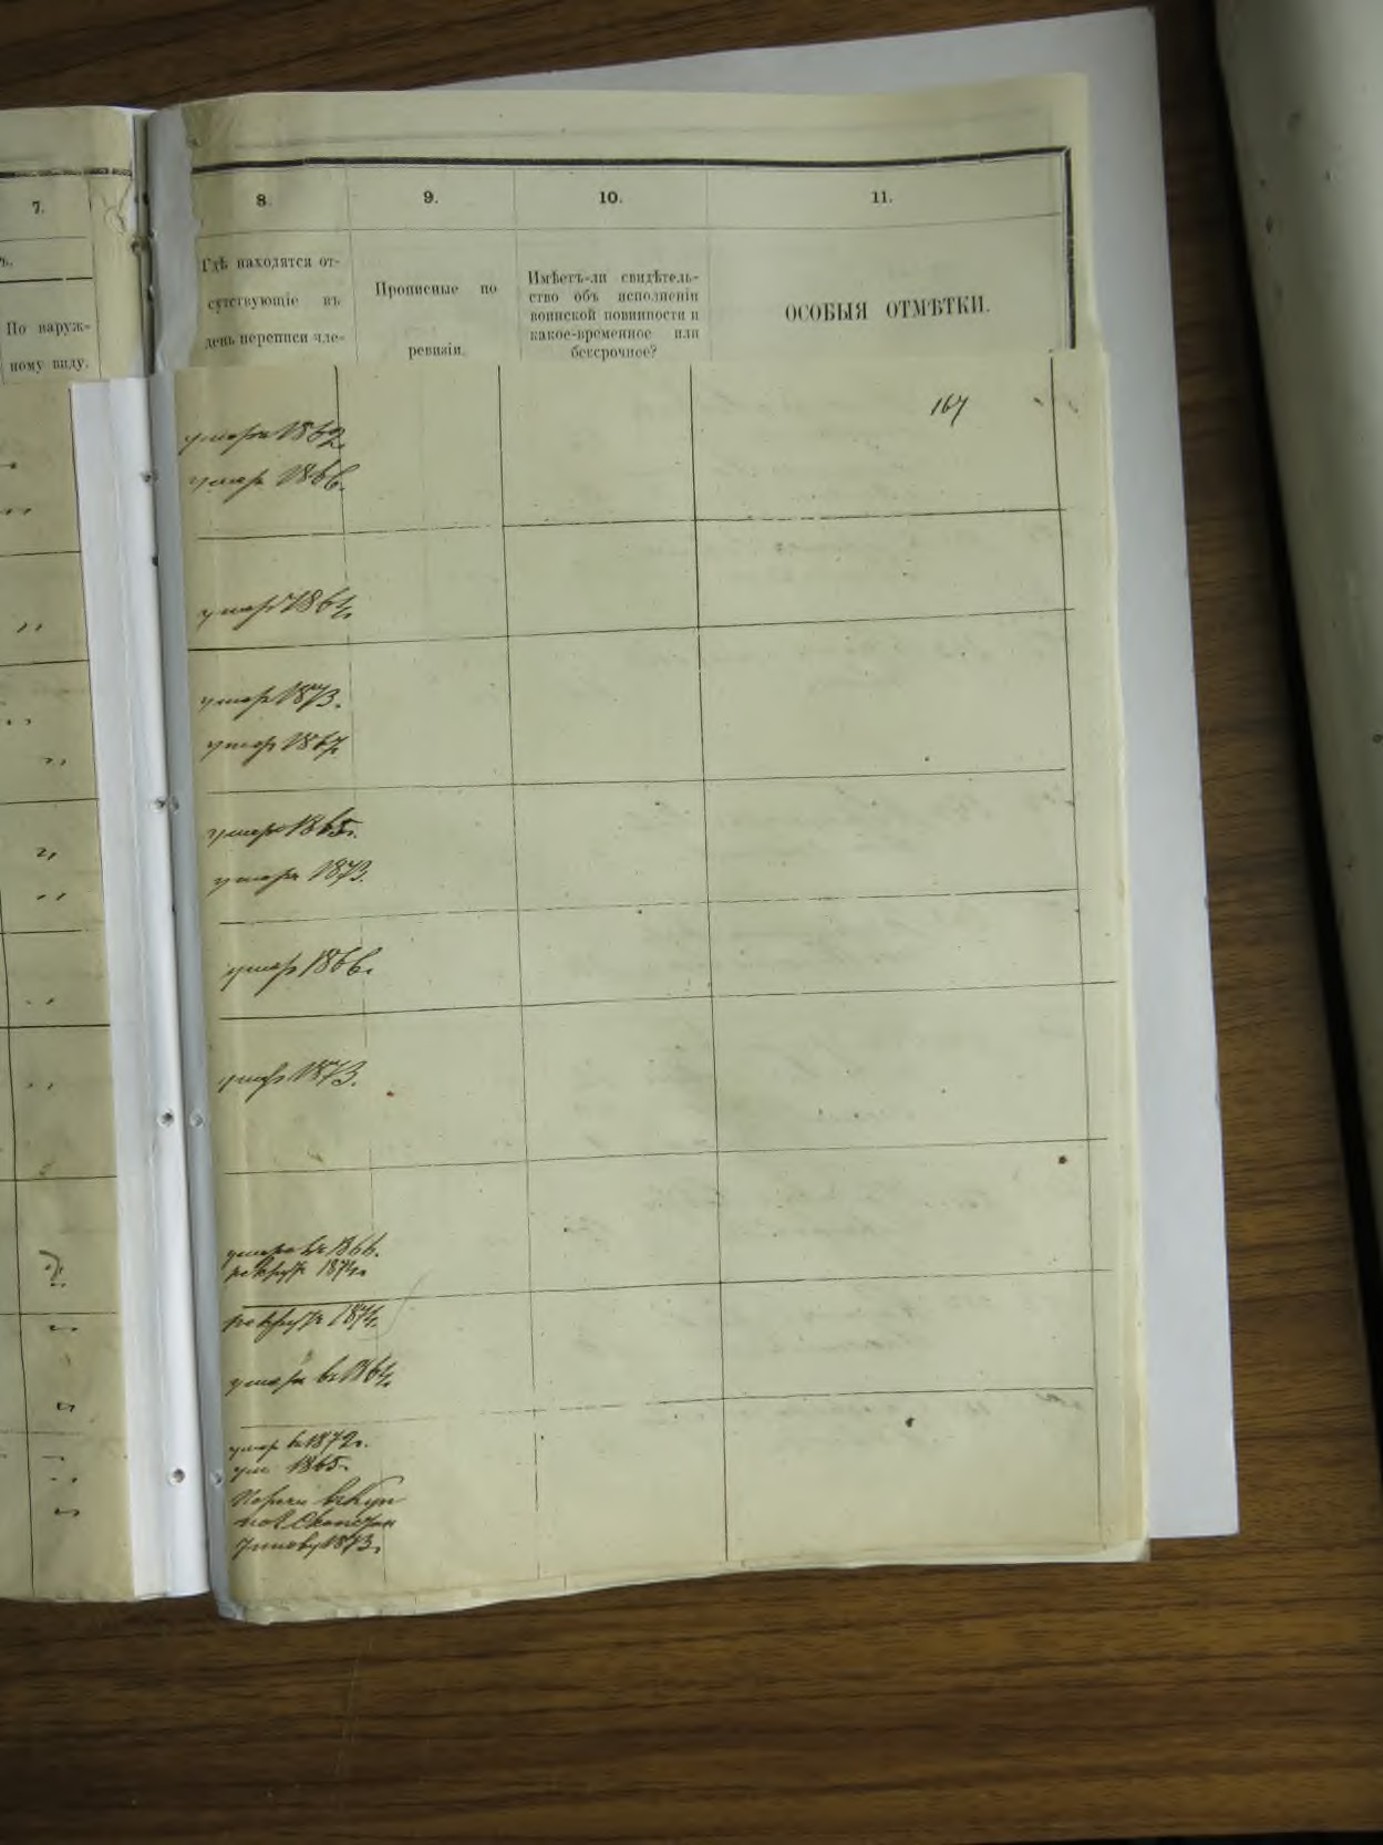 7.
8.
9.
10.
11.
ъ.
По наруж-
ному виду.
Гдѣ находятся от-
сутствующіе въ
день переписи чле-
Прописные по
ревизіи.
Имѣетъ-ли свидѣтель-
ство объ исполненіи
воинской повинности и
какое-временное или
безсрочное?
ОСОБЫЯ ОТМѢТКИ.
167
умеръ 1862
умер 1866.
умер 1864
умер 1873.
умер 1867.
умеръ 1865.
умеръ 1873.
умер 1866.
умер 1873.
умеръ въ 1866.
рекрутъ 1874
рекрутъ 1874.
умеръ въ 1864
умер въ 1872.
ум 1865.
1873.